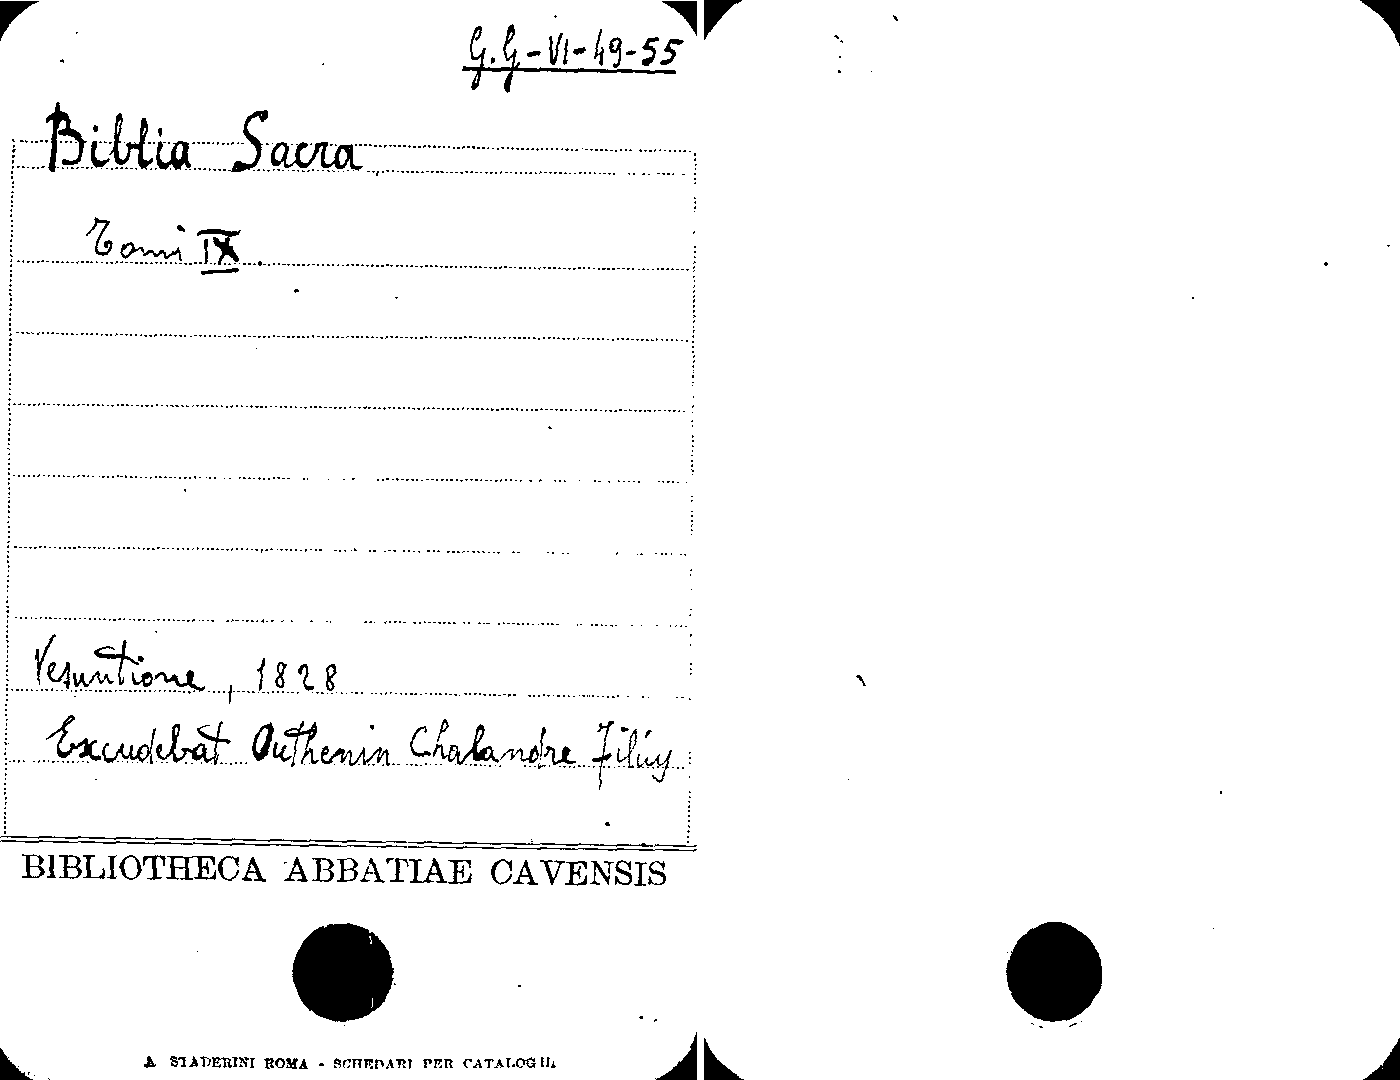 G.G-VI-49-55
Biblia Sacra
Tomi IX.
Vesuntione, 1828
Excudebat Outhenin Chalandre Filiy
BIBLIOTHECA ABBATIAE CAVENSIS
A STADERINI ROMA - SCHEDARI PER CATALOGHI